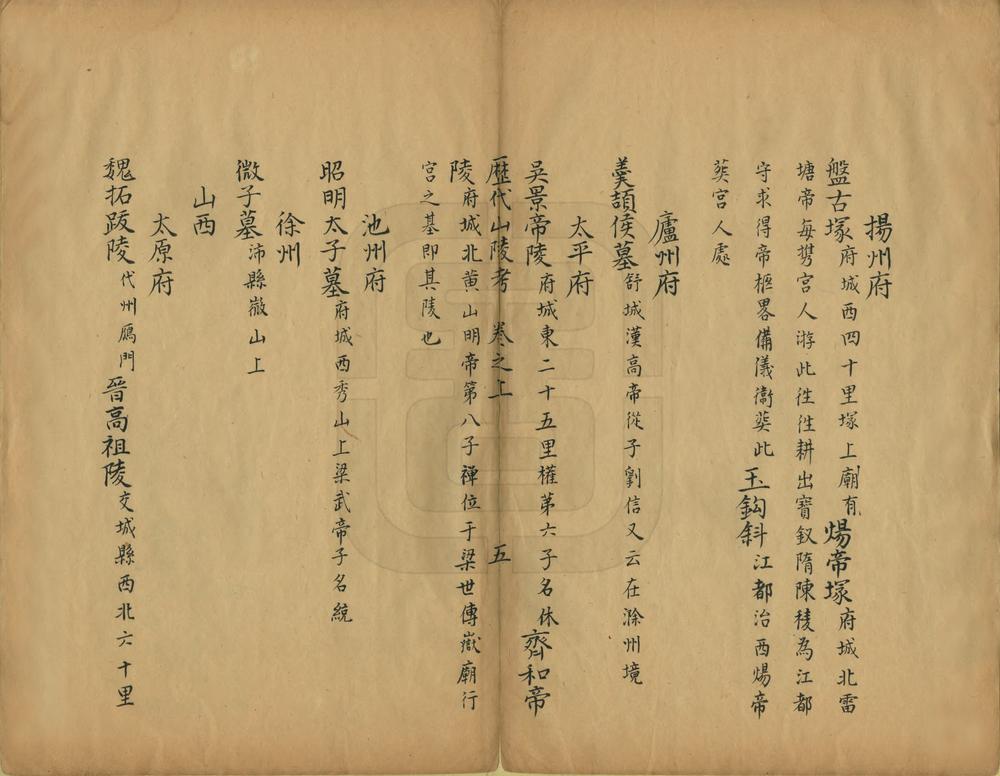 揚州府
盤古塚府城西四十里塚上廟有煬帝塚府城北雷
塘帝每携宮人游此徃徃耕出寶釵隋陳稜為江都
守求得帝柩畧備儀衞葬此玉鈎斜江都治西煬帝
葬宮人處
廬州府
羹頡侯墓舒城漢高帝從子劉信又云在滁州境
太平府
吳景帝陵府城東二十五里權第六子名休齊和帝
歷代山陵考 卷之上 五
陵府城北黃山明帝第八子禪位于梁世傳嶽廟行
宮之基即其陵也
池州府
昭明太子墓府城西秀山上梁武帝子名統
徐州
微子墓沛縣微山上
山西
太原府
魏拓跋陵代州鴈門晉高祖陵交城縣西北六十里